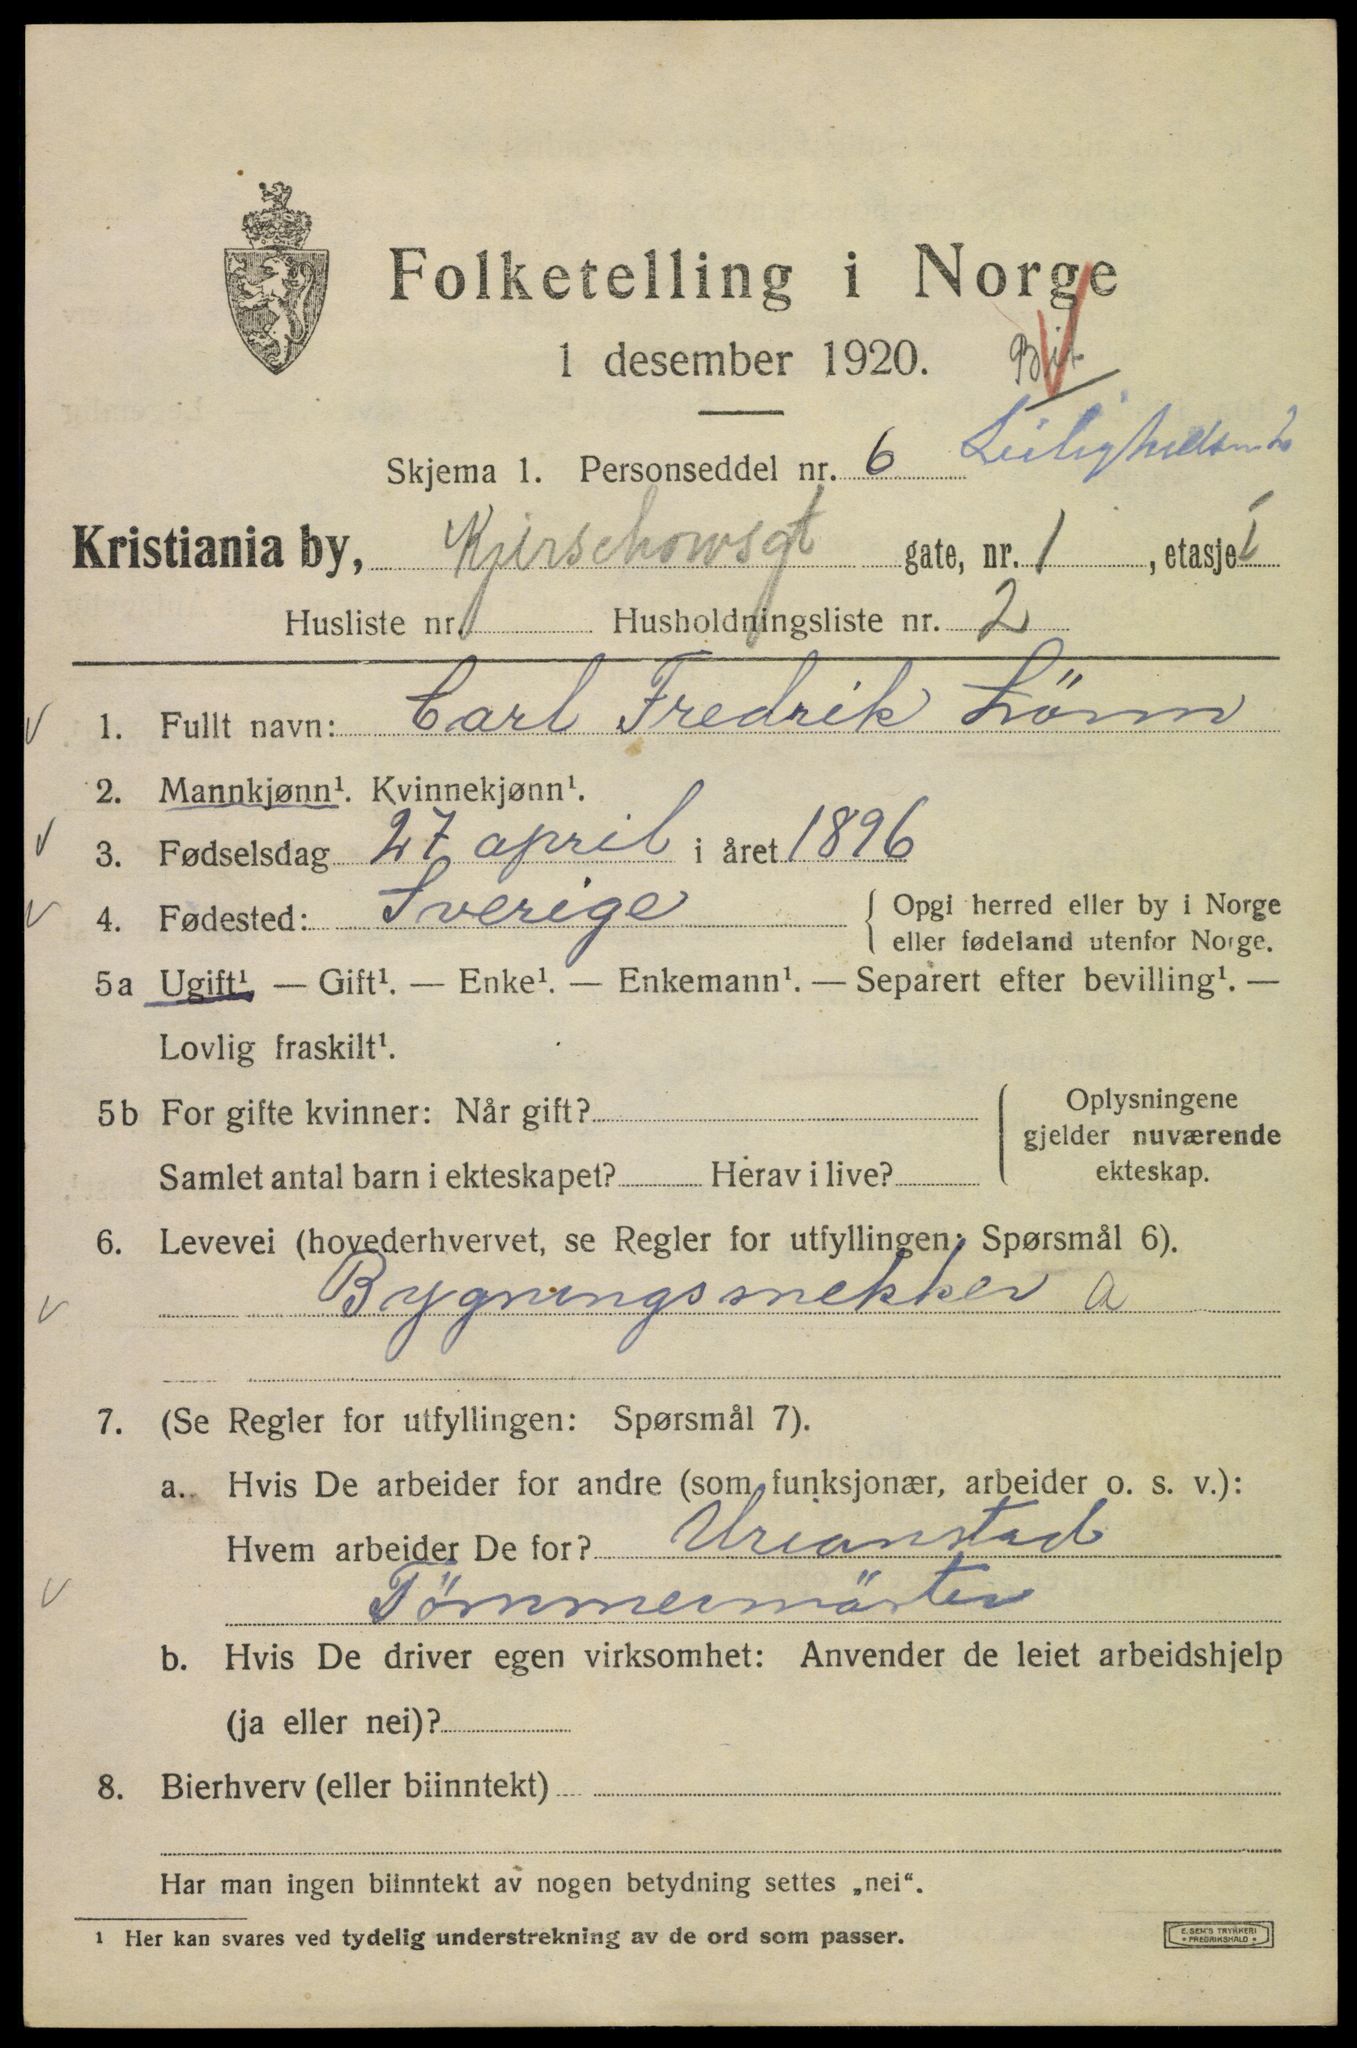 Folketelling i Norge
1 desember 1920.
Skjema 1. Personseddel nr. 6
Kristiania by, Kjerschowsgt gate, nr. 1, etasje 1
Husliste nr. 1 Husholdningsliste nr. 2
1. Fullt navn: Carl Fredrik Lönn
2. Mannkjønn¹. Kvinnekjønn¹.
3. Fødselsdag 27 april i året 1896
4. Fødested: Sverige { Opgi herred eller by i Norge
eller fødeland utenfor Norge.
5a Ugift¹ — Gift¹. — Enke¹. — Enkemann¹. — Separert efter bevilling¹. —
Lovlig fraskilt¹.
5b For gifte kvinner: Når gift?
Samlet antal barn i ekteskapet? Herav i live?
Oplysningene
gjelder nuværende
ekteskap.
6. Levevei (hovederhvervet, se Regler for utfyllingen: Spørsmål 6).
Bygningssnekker a
7. (Se Regler for utfyllingen: Spørsmål 7).
a. Hvis De arbeider for andre (som funksjonær, arbeider o. s. v.):
Hvem arbeider De for? Urianstad
Tømmermäster
b. Hvis De driver egen virksomhet: Anvender de leiet arbeidshjelp
(ja eller nei)?
8. Bierhverv (eller biinntekt)
Har man ingen biinntekt av nogen betydning settes „nei“.
¹ Her kan svares ved tydelig understrekning av de ord som passer.
E. SEM'S TRYKKERI
* FREDRIKSHALD *